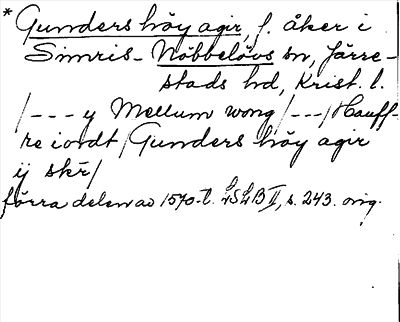 * Gunders höy agir, f. åker i
Simris-Nöbbelövs sn, Järre-
stads hd, Krist. l.
/--- y Mellum wong /---/ Hauff-
re iordt / Gunders höy agir
ij skr̄/
förra delen av 1570-t. LSLB II, s. 243. orig.